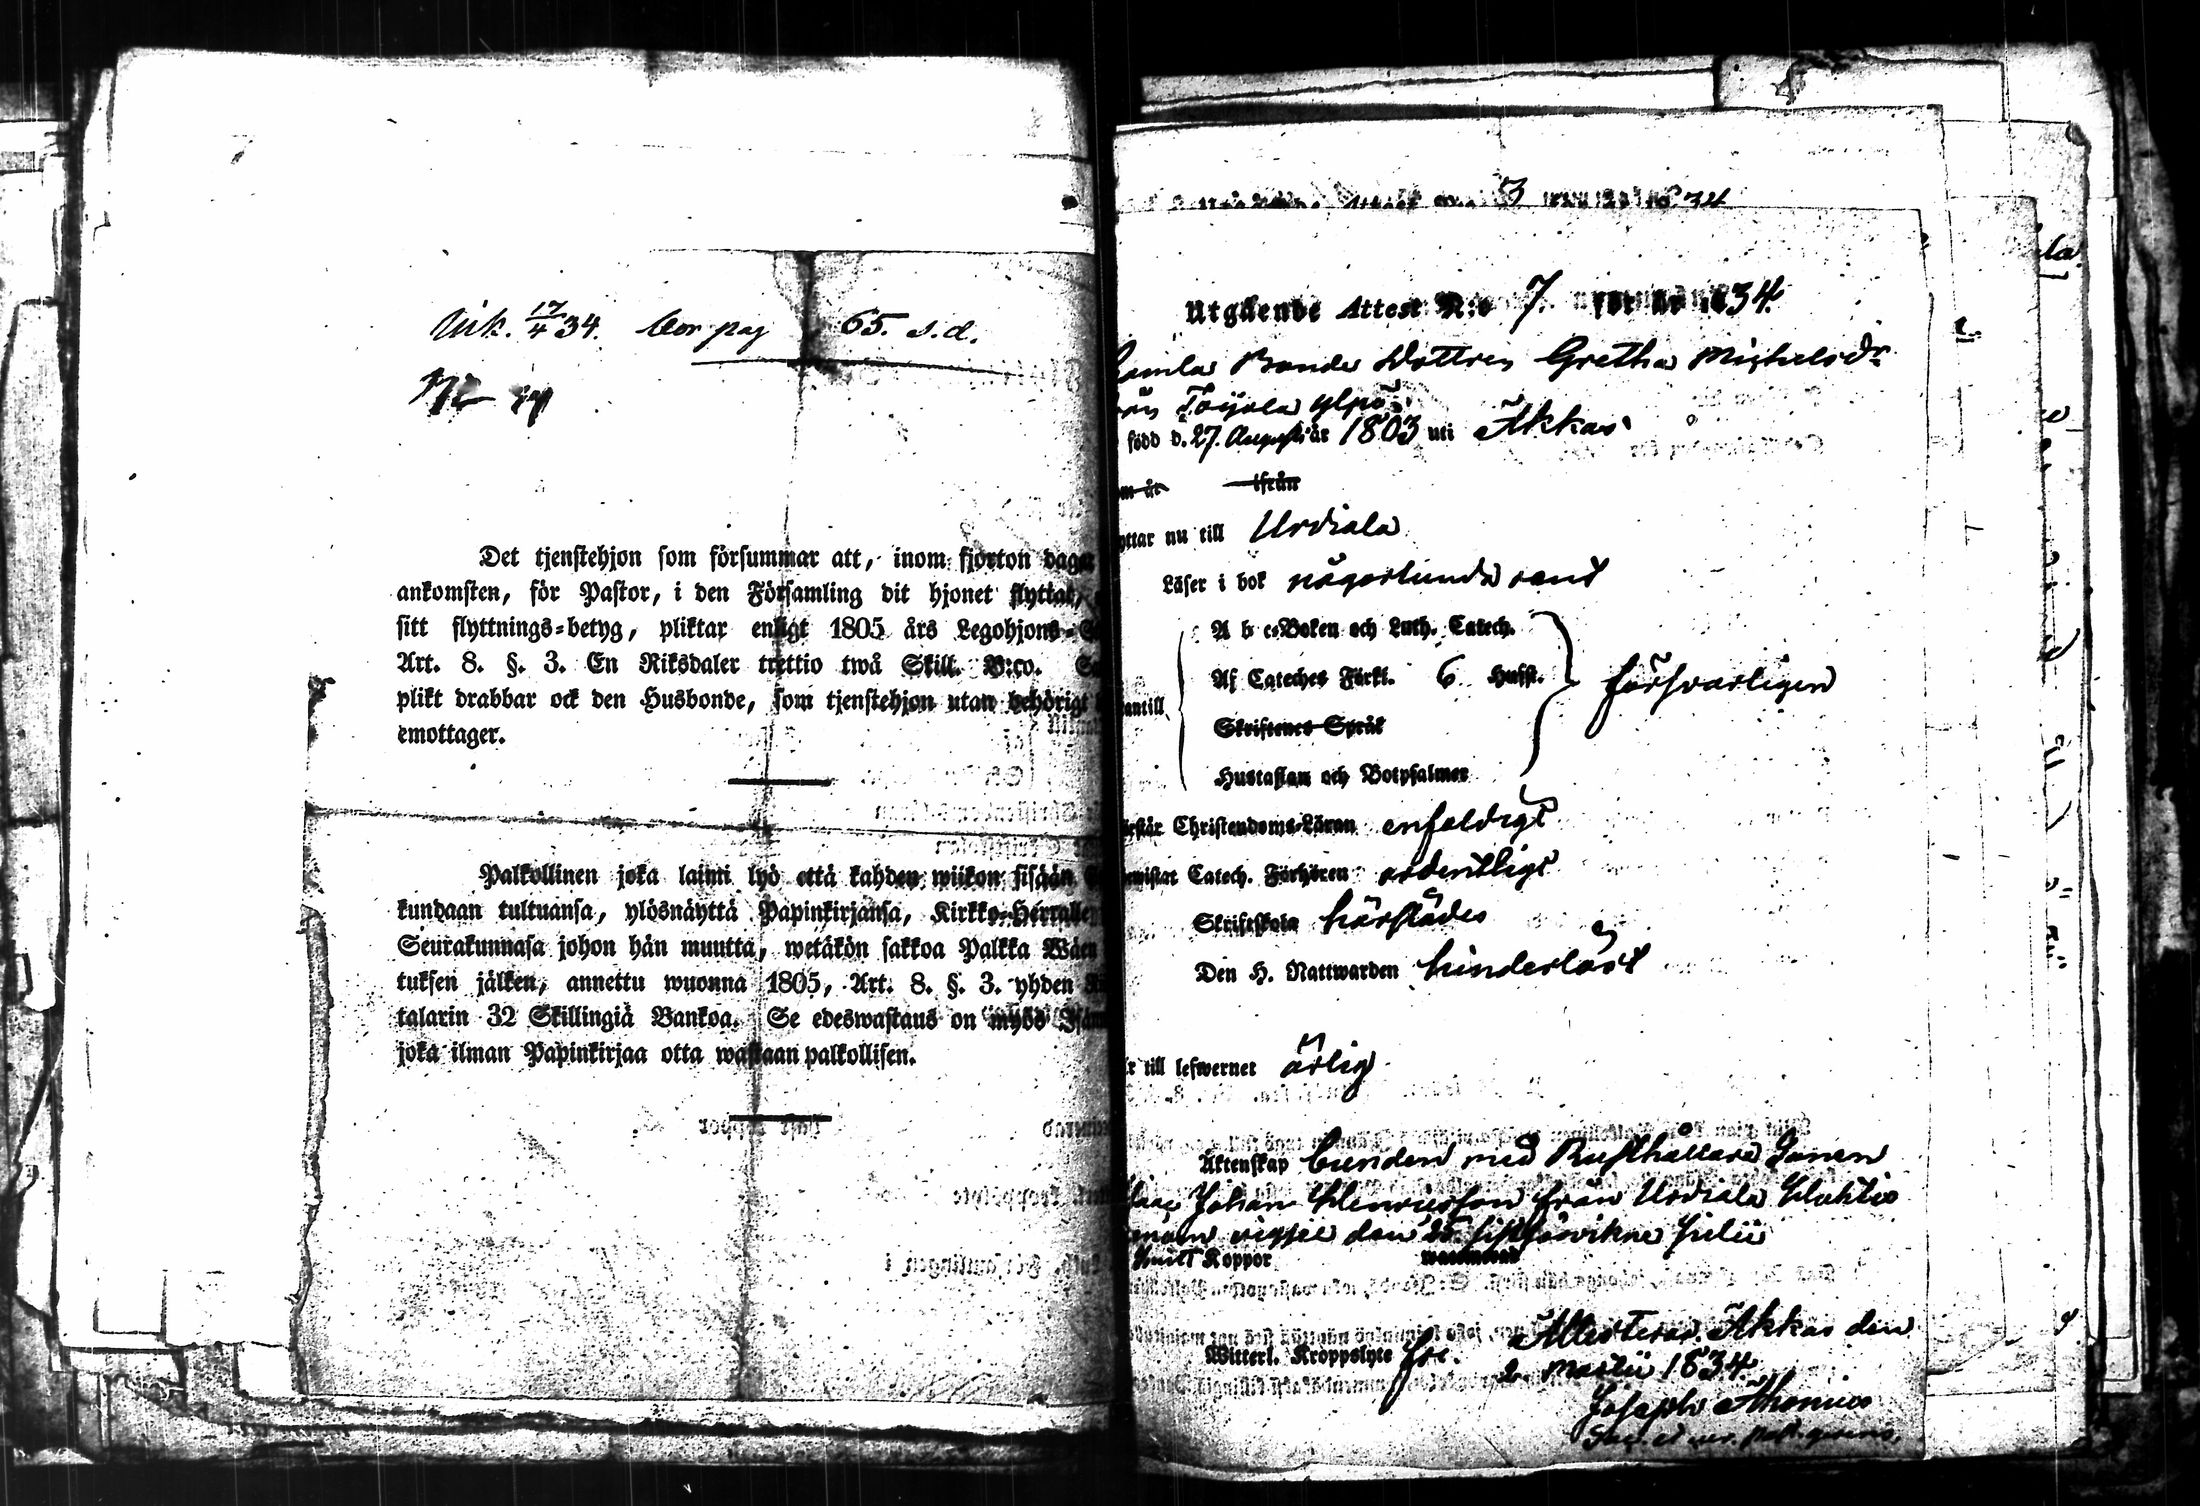 Ink. 17/4 34. Cor pag 65. s.d.
Det tjenstehjon som försummar att, inom fjorton daga
ankomsten, för Pastor, i den Församling dit hjonet flyttat,
sitt flyttnings-betyg, pliktar enligt 1805 års Legohjons-S
Art. 8. §. 3. En Riksdaler trettio twå Skill. B:co. Sa
plikt drabbar ock den Husbonde, som tjenstehjon utan behörigt
emottager.
Palkollinen joka laimi lyö että kahden wiikon sisään
kundaan tultuansa, ylösnäyttä Papinkirjansa, Kirkko-Herralle
Seurakunnasa johon hän muutta, wetäkön sakkoa Palkka Wäen
tuksen jälken, annettu wuonna 1805, Art. 8. §. 3. yhden Ri
talarin 32 Skillingiä Bankoa. Se edeswastaus on myös Isän
joka ilman Papinkirjaa otta wastaan palkollisen.
3 34
Utgående Attest N:o 7. för år 1834.
Gamla Bonde Dottren Gretha Michelsdr
från Toijola ylpö
född d. 27. Augusti år 1803 uti Akkas
om år ifrån
yttar nu till Urdiala
Läser i bok någorlunda rent
A b c-Boken och Luth. Catech.
Af Cateches Förkl. 6 Hufst. försvarligen
antill
Skriftenes Språk
Hustaflan och Botpsalmer
rstår Christendoms-Läran enfaldigt
ewistat Catech. Förhören ordentligt
Skriftskola härstädes
Den H. Nattwarden hinderlöst
r till lefwernet ärlig
Äktenskap bunden med Rusthållare Sonen
Isaac Johan Henricsson från Urdiala Huhtis
vigsel den 25 sistförvikne Julii
haft Koppor vaccinerad
Witterl. Kroppslyte fri. Attesterar. Akkas den
2 Martii 1834.
Joseph